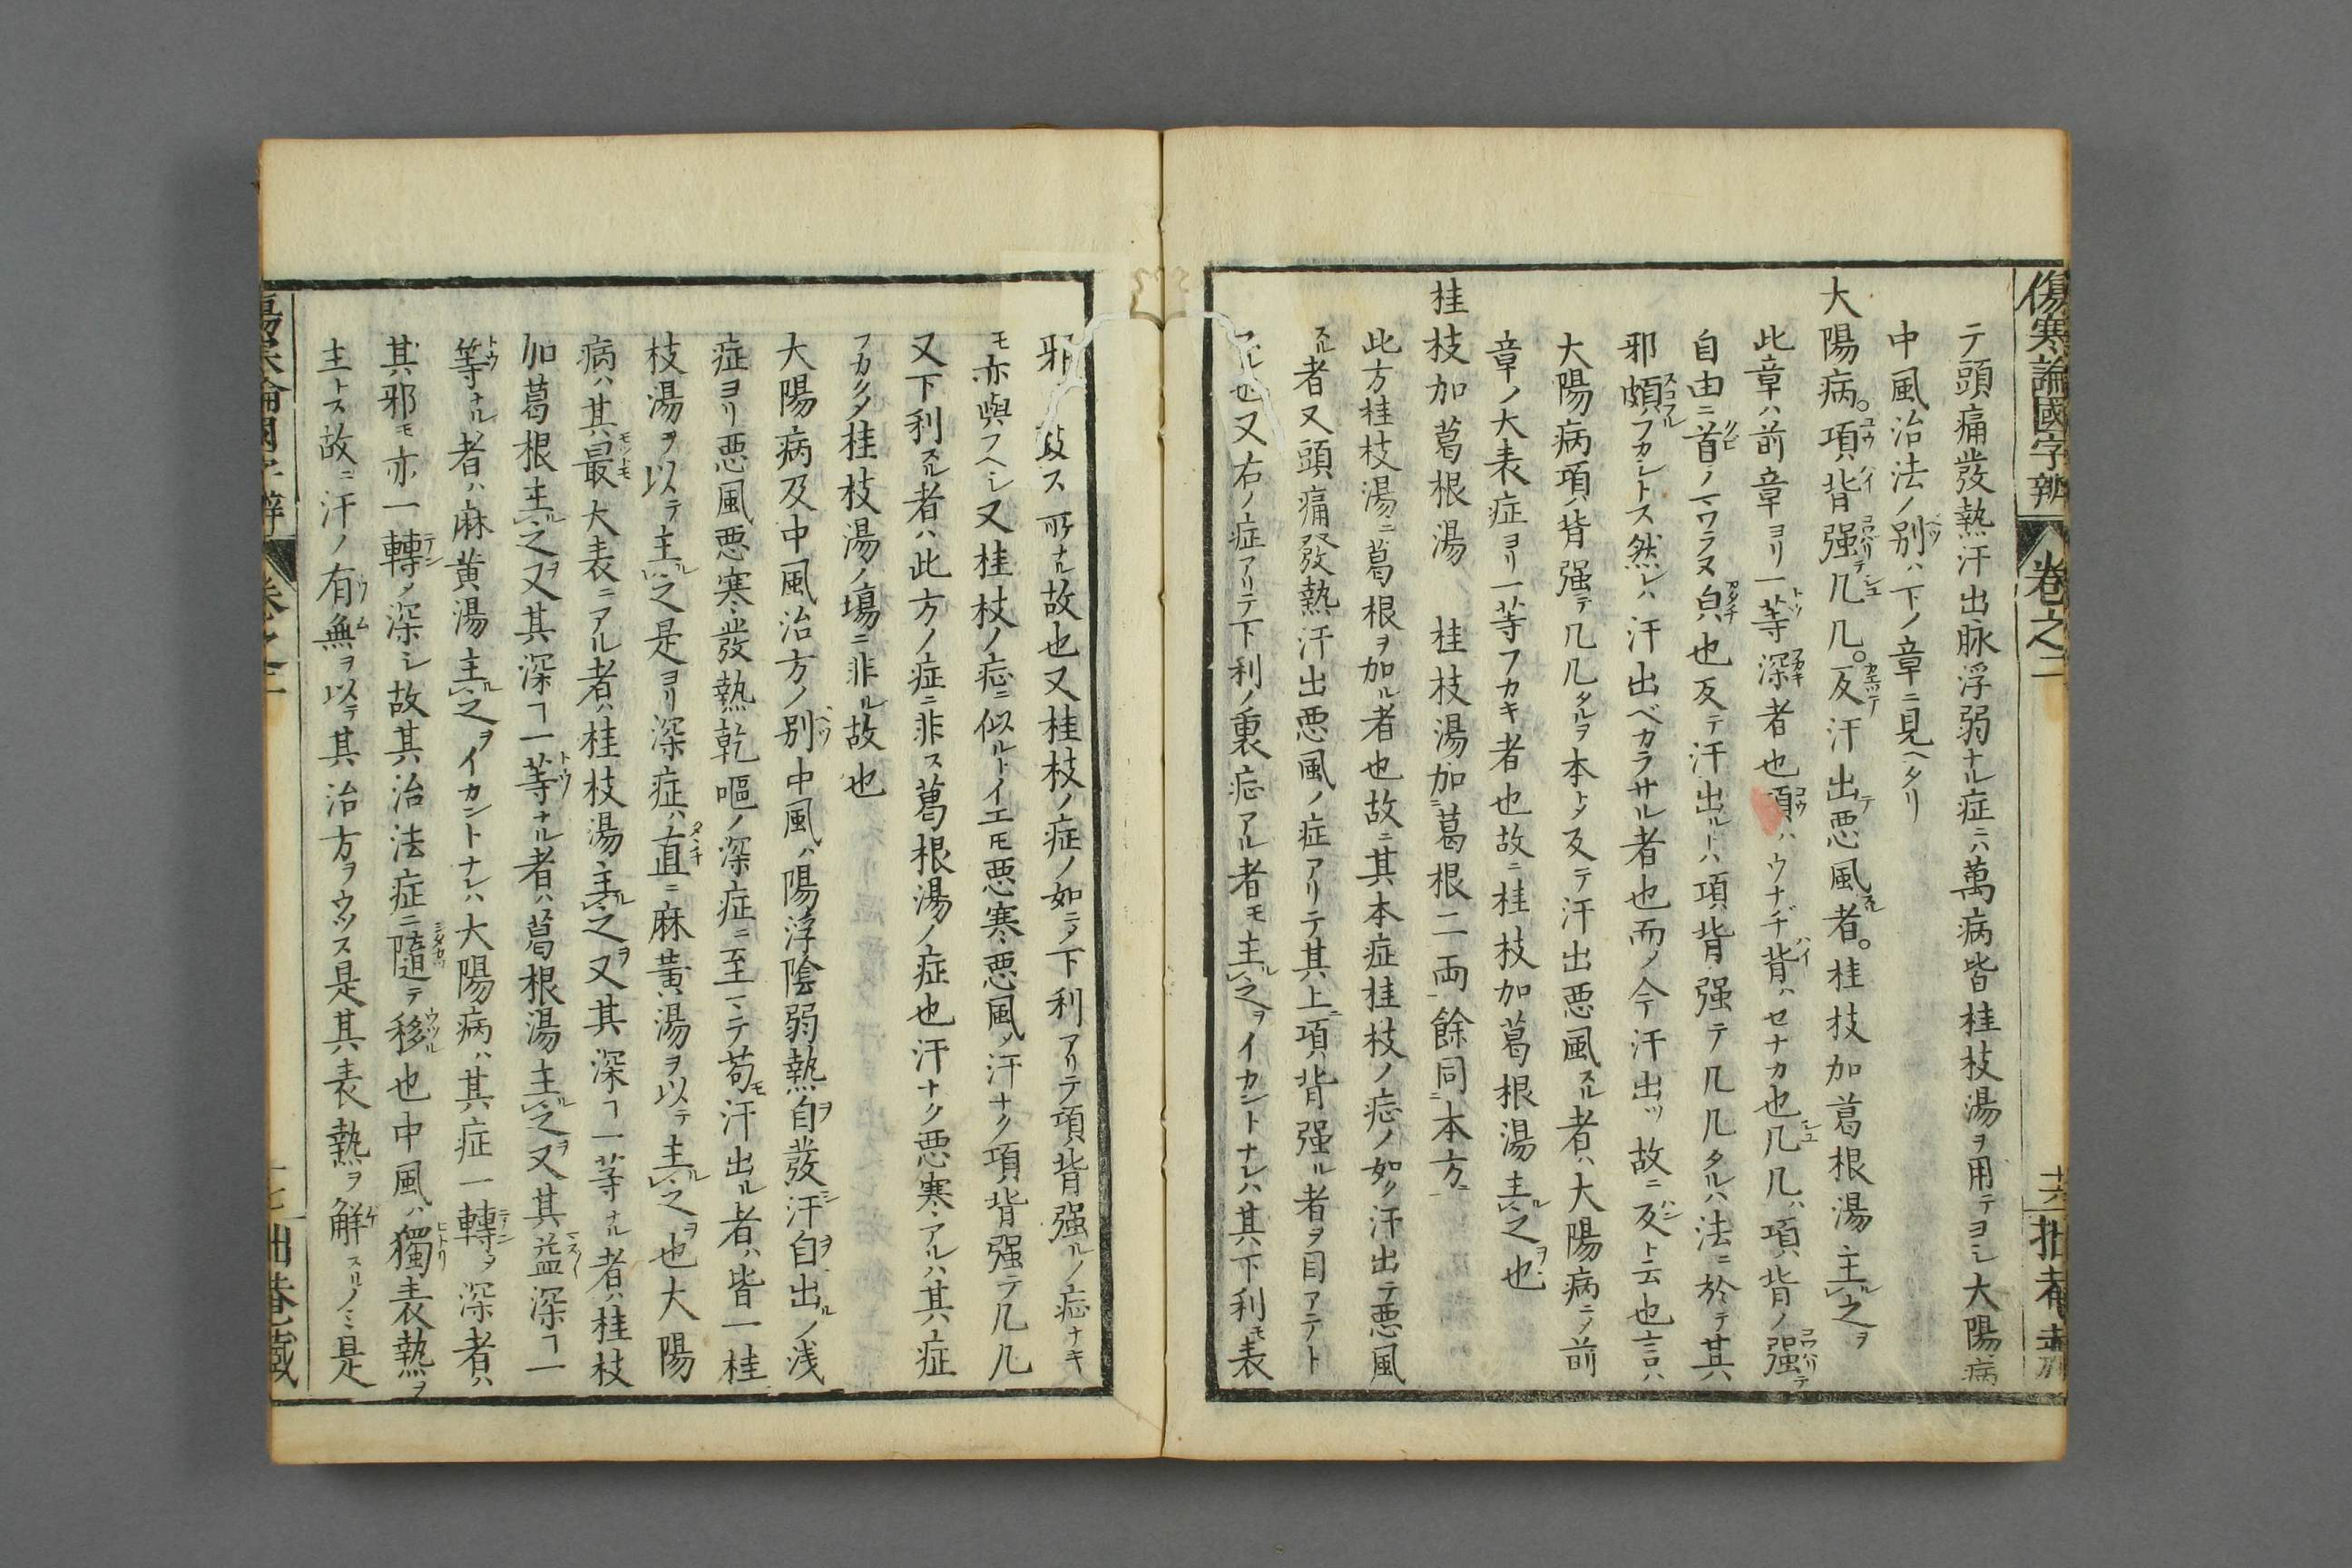 傷寒論國字辨 卷之二 十六 拙菴藏
テ頭痛發熱汗出脉浮弱ナル症ニハ萬病皆桂枝湯ヲ用テヨシ大陽病
中風治法ノ別ハ下ノ章ニ見ヘタリ
大陽病。項背强几几。反汗出惡風者。桂枝加葛根湯主之
此章ハ前章ヨリ一等深キ者也項ハウナヂ背ハセナカ也几几ハ項背ノ强テ
自由ニ首ノマワラヌ皃也反テ汗出ルトハ項背强テ几几タルハ法ニ於テ其
邪頗フカシトス然レハ汗出ベカラサル者也而ノ今汗出ツ故ニ反ト云也言ハ
大陽病項背强テ几几タルヲ本トメ反テ汗出惡風スル者ハ大陽病ニノ前
章ノ大表症ヨリ一等フカキ者也故ニ桂枝加葛根湯主之也
桂枝加葛根湯 桂枝湯加葛根二両餘同本方
此方桂枝湯ニ葛根ヲ加ル者也故ニ其本症桂枝ノ症ノ如ク汗出テ惡風
スル者又頭痛發熱汗出惡風ノ症アリテ其上ニ項背强ル者ヲ目アテト
スル也又右ノ症アリテ下利ノ裏症アル者モ主之ヲイカントナレハ其下利モ表
邪 スル故也又桂枝ノ症ノ如ニノ下利アリテ項背强ルノ症ナキ
モ亦與フヘシ又桂枝ノ症ニ似ルトイエモ惡寒惡風ノ汗ナク項背强テ几几
又下利スル者ハ此方ノ症ニ非ス葛根湯ノ症也汗ナク惡寒アルハ其症
フカクメ桂枝湯ノ塲ニ非ル故也
大陽病及中風治方ノ別中風ハ陽浮陰弱熱自發汗自出ルノ浅
症ヨリ惡風惡寒發熱乾嘔ノ深症ニ至マテ苟モ汗出ル者ハ皆一桂
枝湯ヲ以テ主之是ヨリ深症ハ直ニ麻黄湯ヲ以テ主之也大陽
病ハ其最大表ニアル者ハ桂枝湯主之又其深ヿ一等ナル者ハ桂枝
加葛根主之又其深ヿ一等ナル者ハ葛根湯主之又其益深ヿ一
等ナル者ハ麻黄湯主之ヲイカントナレハ大陽病ハ其症一轉ノ深者ハ
其邪モ亦一轉ノ深シ故其治法症ニ隨テ移也中風ハ獨表熱ヲ
主トス故ニ汗ノ有無ヲ以テ其治方ヲウツス是其表熱ヲ解スルノミ是